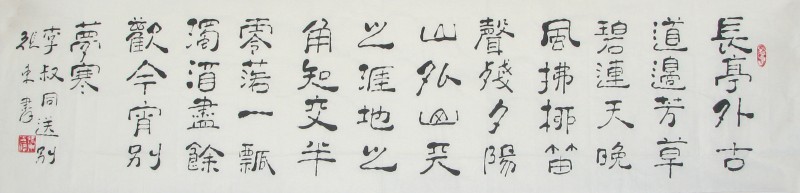 長亭外古
道邊芳草
碧連天晚
風拂柳笛
聲殘夕陽
山外山天
之涯地之
角知交半
零落一瓢
濁酒盡餘
歡今宵別
夢寒
李叔同送別
書